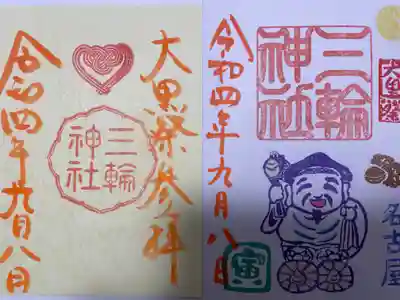 大黒祭参拝
三輪
神社
令和四年九月八日
三輪
神社
大黒祭
令和四年九月八日
名古屋
寅